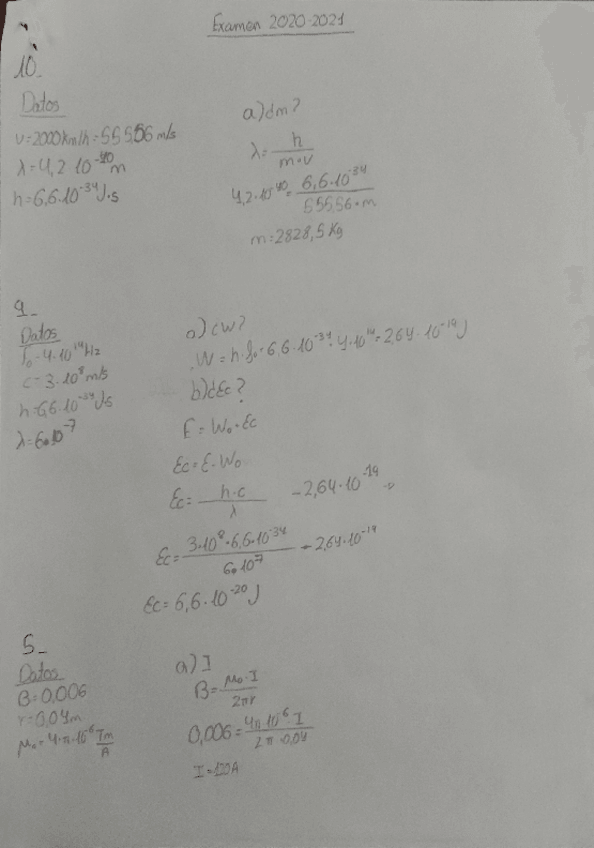 Examen 2020-2021
10_
Datos
v=2000km/h=555,56 m/s
λ=4,2·10⁻⁴⁰m
h=6,6·10⁻³⁴J·s
a) ¿m?
λ= h / m·v
4,2·10⁻⁴⁰= 6,6·10⁻³⁴ / 555,56·m
m=2828,5 Kg
9_
Datos
f₀=4·10¹⁴Hz
c=3·10⁸m/s
h=6,6·10⁻³⁴J·s
λ=6·10⁻⁷
a) ¿W?
W=h·f₀=6,6·10⁻³⁴·4·10¹⁴=2,64·10⁻¹⁹J
b) ¿Ec?
E=W₀·Ec
Ec=E-W₀
Ec= h·c / λ -2,64·10⁻¹⁹
Ec= 3·10⁸·6,6·10⁻³⁴ / 6·10⁷ -2,64·10⁻¹⁹
Ec=6,6·10⁻²⁰J
5_
Datos
B=0,006
r=0,04m
μ₀=4·π·10⁻⁶ Tm/A
a) I
B= μ₀·I / 2πr
0,006= 4π·10⁻⁶·I / 2π·0,04
I=120A